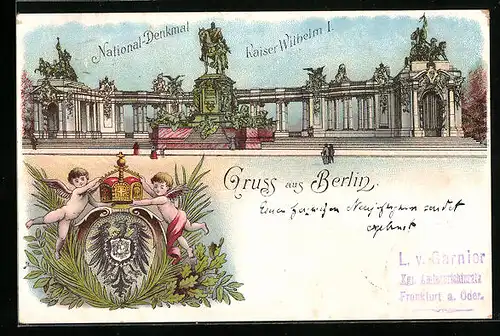 National-Denkmal Kaiser Wilhelm I.
Gruss aus Berlin.
Einen herzlichen Neujahrsgruss sendet
ergebenst
L. v. Garnier
Kgl.
Frankfurt a. Oder.